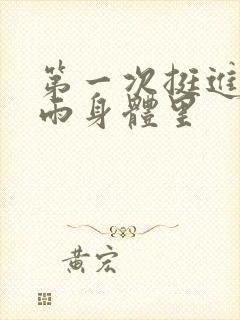 第一次挺進
雨身體里
黃宏